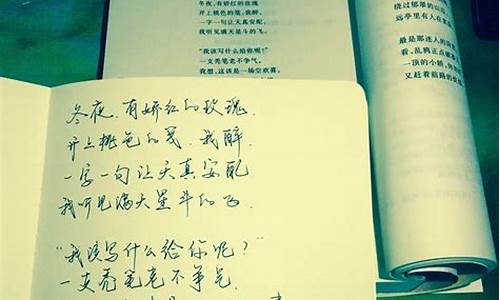 冬夜,有娇红的玫瑰
开上桃色的笺,我醉,
一字一句让天真安配,
我听见满天星斗的飞。
“我该写什么给你呢?”
一支秃笔老不争气,
绕过郁翠的山
远亭里有人在
最是那迷人的
看,乱鸦正点破
一顶的小轿,
又赶着前路的
冬夜,有娇红的玫瑰,
开上桃色的笺,我醉,
一字一句让天真安配
我听见满天星斗的飞。
“我该写什么给你呢?”
一支秃笔老不争气,